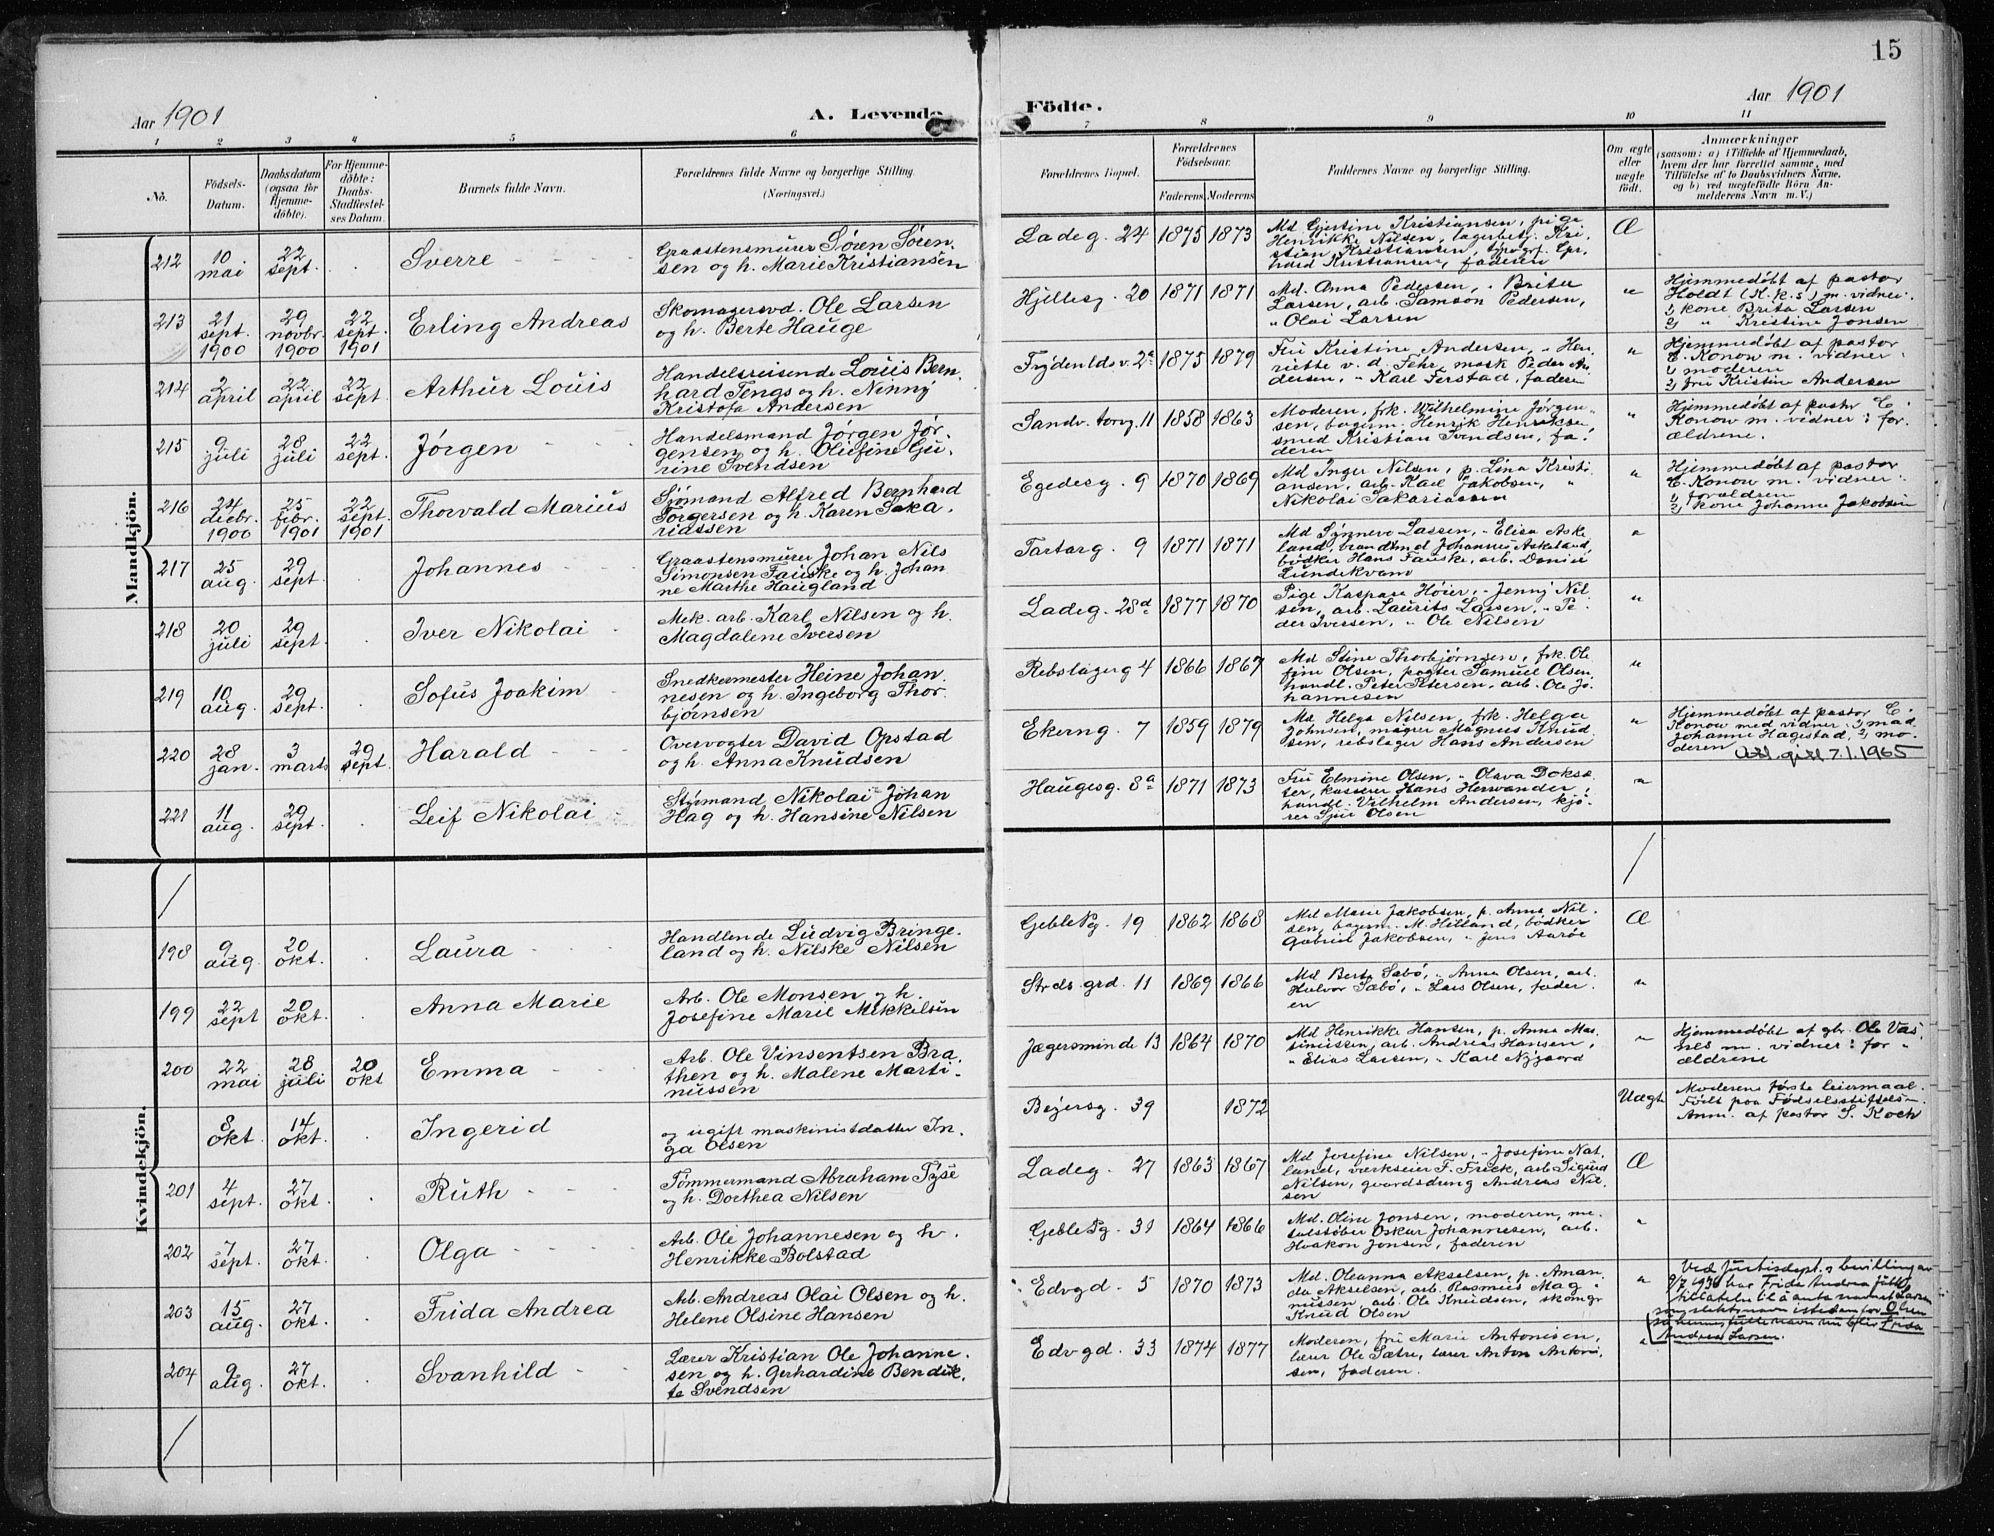 15
Aar 1901
A. Levende
Födte.
Aar 1901
1 2 3 4 5 6 7 8 9 10 11
No.
Födsels-
Datum.
Daabsdatum
(ogsaa for
Hjemme-
döbte).
For Hjemme-
döbte:
Daabs-
Stadfæstel-
ses Datum.
Barnets fulde Navn.
Forældrenes fulde Navne og borgerlige Stilling.
(Næringsvei.)
Forældrenes Bopæl.
Forældrenes
Födselsaar.
Faderens Moderens
Faddernes Navne og borgerlige Stilling.
Om ægte
eller
uægte
födt.
Anmærkninger
(saasom: a) i Tilfælde af Hjemmedaab,
hvem der har forrettet samme, med
Tilföielse af to Daabsvidners Navne,
og b) ved uægtefödte Börn An-
melderens Navn m. V.)
Mandkjön.
212
10
mai
22
sept.
Sverre
Graastensmurer Sören Sören-
sen og h. Marie Kristiansen
Ladeg. 24 1875 1873
Md Gjertine Kristiansen, pige
Henrikke Nilsen, lagerbetj. Kri-
stian Kristiansen, typogr. Ger-
hard Kristiansen, faderen
Æ
213
21
sept.
1900
29
novbr.
1900
22
sept.
1901
Erling Andreas
Skomagersvd. Ole Larsen
og h. Berte Hauge
Hjelleg. 20 1871 1871
Md. Anna Pedersen, " Brita
Larsen, arb. Samson Pedersen,
" Olai Larsen
"
Hjemmedöbt af pastor
Holdt (K.k.s) m. vidner:
1) kone Brita Larsen
2) " Kristine Jonsen
214
2
april
22
april
22
sept.
Arthur Louis
Handelsreisende Louis Bern-
hard Tengs og h. Ninny
Kristofa Andersen
Frydenldsv. 2a 1875 1879
Fru Kristine Andersen, " Hen-
riette v. d. Fehr, mask Peder An-
dersen, " Karl Ferstad, faderen
"
Hjemmedöbt af pastor
C. Konow m. vidner:
1) moderen
2) fru Kristine Andersen
215
9
juli
28
juli
22
sept.
Jörgen
Handelsmand Jörgen Jör-
gensen og h. Olufine Gu-
rine Svendsen
Sandv. torvg. 11 1858 1863
Moderen, frk. Wilhelmine Jörgen-
sen, bogerm. Henrik Henriksen,
smed Kristian Svendsen, fa-
deren
"
Hjemmedöbt af pastor C.
Konow m. vidner: for-
ældrene.
216
24
decbr.
1900
25
febr.
1901
22
sept.
1901
Thorvald Marius
Sjömand Alfred Bernhard
Torgersen og h. Karen Saka-
riassen
Egedesg. 9 1870 1869
Md Inger Nilsen, p. Lina Kristi-
ansen, arb. Karl Jakobsen, "
Nikolai Sakariassen
"
Hjemmedöbt af pastor
C. Konow m. vidner:
1) forældren
2) kone Johanne Jakobsen
217
25
aug.
29
sept.
Johannes
Graastensmurer Johan Nils
Simonsen Fauske og h. Johan-
ne Marthe Haugland
Tartarg. 9 1871 1871
Md Synneve Lassen, " Elisa Aske-
land, brandtmd Johannes Askeland,
bödker Hans Fauske, arb. Daniel
Lundekvam
"
218
20
juli
29
sept.
Iver Nikolai
Mek. arb. Karl Nilsen og h.
Magdalene Iversen
Ladeg. 28d 1877 1870
Pige Kaspara Höier, " Jenny Nil-
sen, arb. Laurits Larsen, " Pe-
der Iversen, " Ole Nilsen
"
219
10
aug.
29
sept.
Sofus Joakim
Snedkermester Heine Johan-
nesen og h. Ingeborg Thor-
björnsen
Rebslagerg 4 1866 1867
Md Stine Thorbjörnsen, frk. Ole
fine Olsen, fogter Samuel Olsen,
handl. Peter Petersen, arb. Ole Jo-
hannesen
"
220
28
jan.
3
marts
29
sept.
Harald
Overvogter David Opstad
og h. Anna Knudsen
Ekerng. 7 1859 1879
Md. Helga Nilsen, frk. Helga
Johnsen, magier Magnus Knud-
sen, rebslager Hans Andersen
"
Hjemmedöbt af pastor C.
Konow med vidner: 1) mad.
Johanne Hagestad, 2) mo-
deren
Att. gitt 7.1.1965
221
11
aug.
29
sept.
Leif Nikolai
Styrmand Nikolai Johan
Hag og h. Hansine Nilsen
Haugesg. 8a 1871 1873
Fru Elmine Olsen, " Olava Dokse-
ter, kasserer Hans Herwander,
handl. Vilhelm Andersen, kjö-
rer Sjur Olsen
"
Kvindekjön.
198
9
aug.
20
okt.
Laura
Handlende Ludvig Bringe-
land og h. Nilske Nilsen
Geble Pg. 19 1862 1868
Md Marie Jakobsen, p. Anna Nil-
sen, bogerm. M. Hilland, bödker
Gabriel Jakobsen, " Jens Aaröe
Æ
199
22
sept
20
okt.
Anna Marie
Arb. Ole Monsen og h.
Josefine Marie Mikkelsen
Strds.grd. 11 1869 1866
Md Berta Sæbö, " Anna Olsen, arb.
Halvor Sæbö, " Lars Olsen, fader-
en
"
200
22
mai
28
juli
20
okt
Emma
Arb. Ole Vinsentsen Bra-
then og h. Malene Marti-
nussen
Jægersminde 13 1864 1870
Md. Henrikke Hansen, p. Anna Ras-
mussen, arb. Andreas Hansen,
" Elias Larsen, " Karl Nygaard
"
Hjemmedöbt af gbr. Ole Vas-
nes m. vidner: for-
ældrene
8
okt.
14
okt.
Ingerid
og ugift maskinistdatter In-
ga Olsen
Beyersg. 39 1872
Uægt
Moderens förste leiermaal.
Födt paa Födselsstiftels-
Anm. af pastor S. Koch
201
4
sept.
27
okt.
Ruth
Tömmermand Abraham Tyse
og h. Dorthea Nilsen
Ladeg. 27 1863 1867
Md Josefine Nilsen, " Josefine Nat-
land, værkseier F. Frick, arb. Sigurd
Nilsen, gaardsdreng Andreas Nil-
sen
Æ
202
7
sept.
27
okt.
Olga
Arb. Ole Johannesen og h.
Henrikke Bolstad
Geble Pg. 31 1864 1866
Md. Oline Jonsen, moderen, me-
talstöber Oskar Johannesen, arb.
Haakon Jonsen, faderen
"
203
15
aug.
27
okt.
Frida Andrea
Arb. Andreas Olai Olsen og h.
Helene Olsine Hansen
Edvgd. 5 1870 1873
Md. Oleanna Akselsen, p. Aman-
da Akselsen, arb. Rasmus Mag-
nussen, arb. Ole Knudsen, skomgr
Knud Olsen
"
Ved Justisdept.s bevilling av
9/7 1930 har Frida Andrea fått
tilladelse til å anta navnet Larsen
som slektsnavn istedenfor Olsen
så hennes fulle navn nu blir Frida
Andrea Larsen.
204
9
aug.
27
okt.
Svanhild
Lærer Kristian Ole Johanne-
sen og h. Gerhardine Bendik-
te Svendsen
Edvgd. 33 1874 1877
Moderen, fru Marie Antonisen,
lærer Ole Sætre, lærer Anton Antoni-
sen, faderen.
"